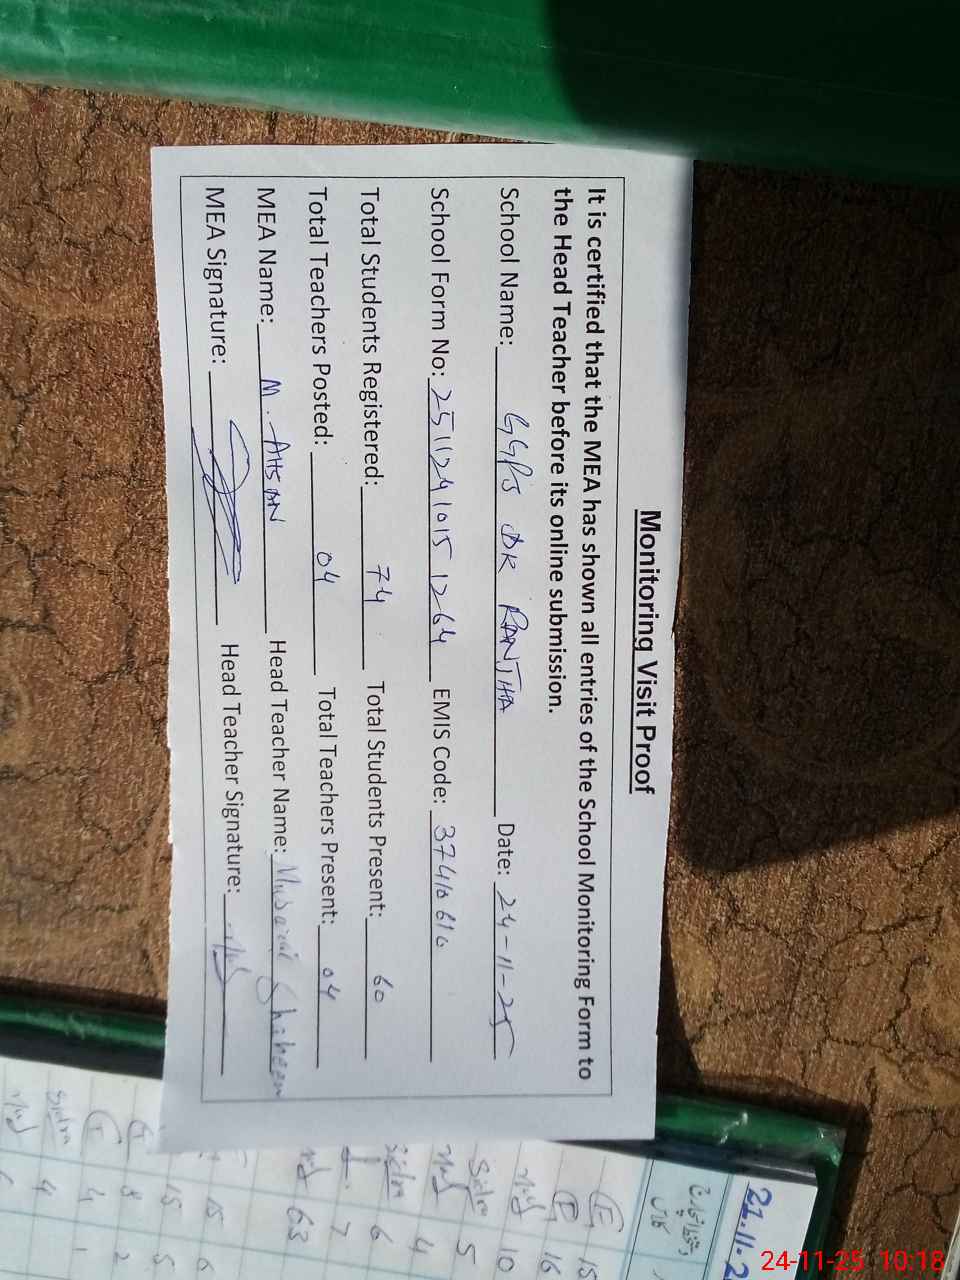 Monitoring Visit Proof
It is certified that the MEA has shown all entries of the School Monitoring Form to
the Head Teacher before its online submission.
School Name: GGPS DK RANJHA Date: 24-11-25
School Form No: 2511241015 1264 EMIS Code: 37410610
Total Students Registered: 74 Total Students Present: 60
Total Teachers Posted: 04 Total Teachers Present: 04
MEA Name: M. AHSAN Head Teacher Name: Shaheen
MEA Signature: Head Teacher Signature:
21.11.2
15
16
10
Sidra 5
4
Sidra 6
7
63
15 6
15 5
8 2
4 1
Sidra 4
24-11-25 10:18